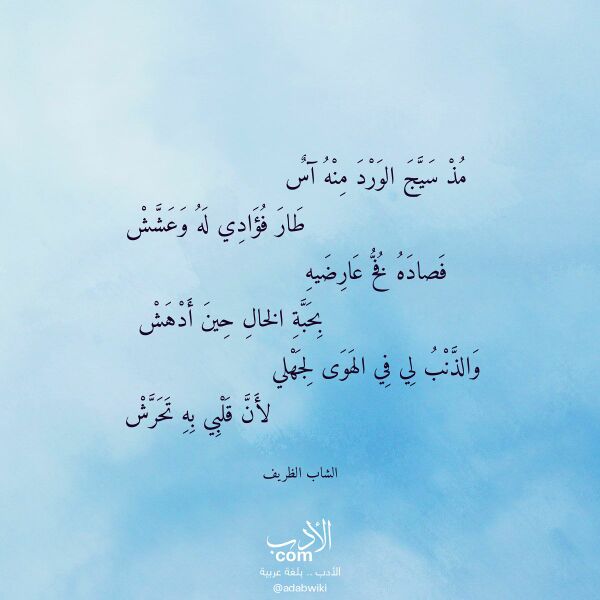 مُذْ سَيَّجَ الوَرْدَ مِنْهُ آسٌ
طَارَ فُؤَادِي لَهُ وَعَشَّشْ
فَصادَهُ فُخُّ عَارِضَيهِ
بِحَبَّةِ الخالِ حِينَ أَدْهَشْ
وَالذَّنْبُ لِي فِي الهَوَى لِجَهْلي
لأَنَّ قَلْبِي بِهِ تَحَرَّشْ
الشاب الظريف
الأدب
com
الأدب .. بلغة عربية
@adabwiki